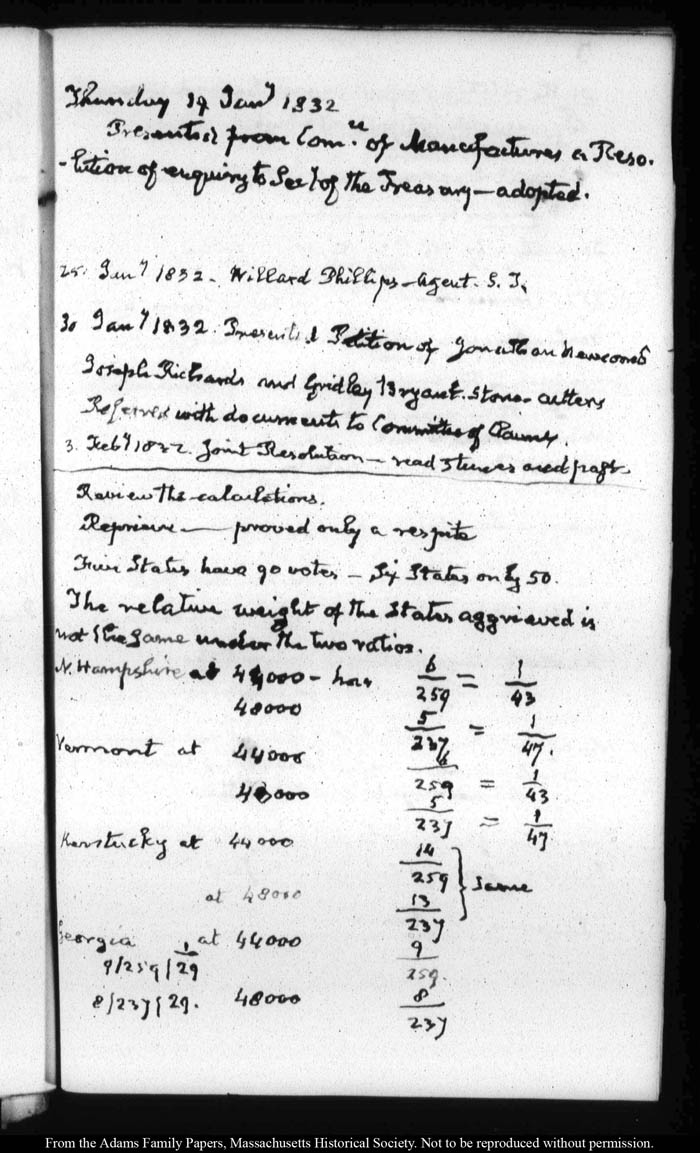 Thursday 19 Jany 1832
Presented from Comee of Manufactures a Reso-
-lution of enquiry to Secy of the Treasury — adopted.
25. Jany 1832 - Willard Phillips - Agent. S. I.
30 Jany 1832. Presented Petition of Jonathan Newcomb
Joseph Richards and Gridley Bryant. Stone-cutters
Referred with documents to Committee of Claims.
3. Feby 1832. Joint Resolution — read 3 times and past
Review the calculations.
Reprieve — proved only a respite
Five States have 90 votes — Six States only 50.
The relative weight of the States aggrieved is
not the same under the two ratios.
N. Hampshire at 44000 - has 6/259 = 1/43
48000 5/237 = 1/47.
Vermont at 44000 6/259 = 1/43
48000 5/237 = 1/47
Kentucky at 44000 14/259 } Same
at 48000 13/237
Georgia at 44000 9/259.
9/259/29 1
8/237/29. 48000 8/237
From the Adams Family Papers, Massachusetts Historical Society. Not to be reproduced without permission.